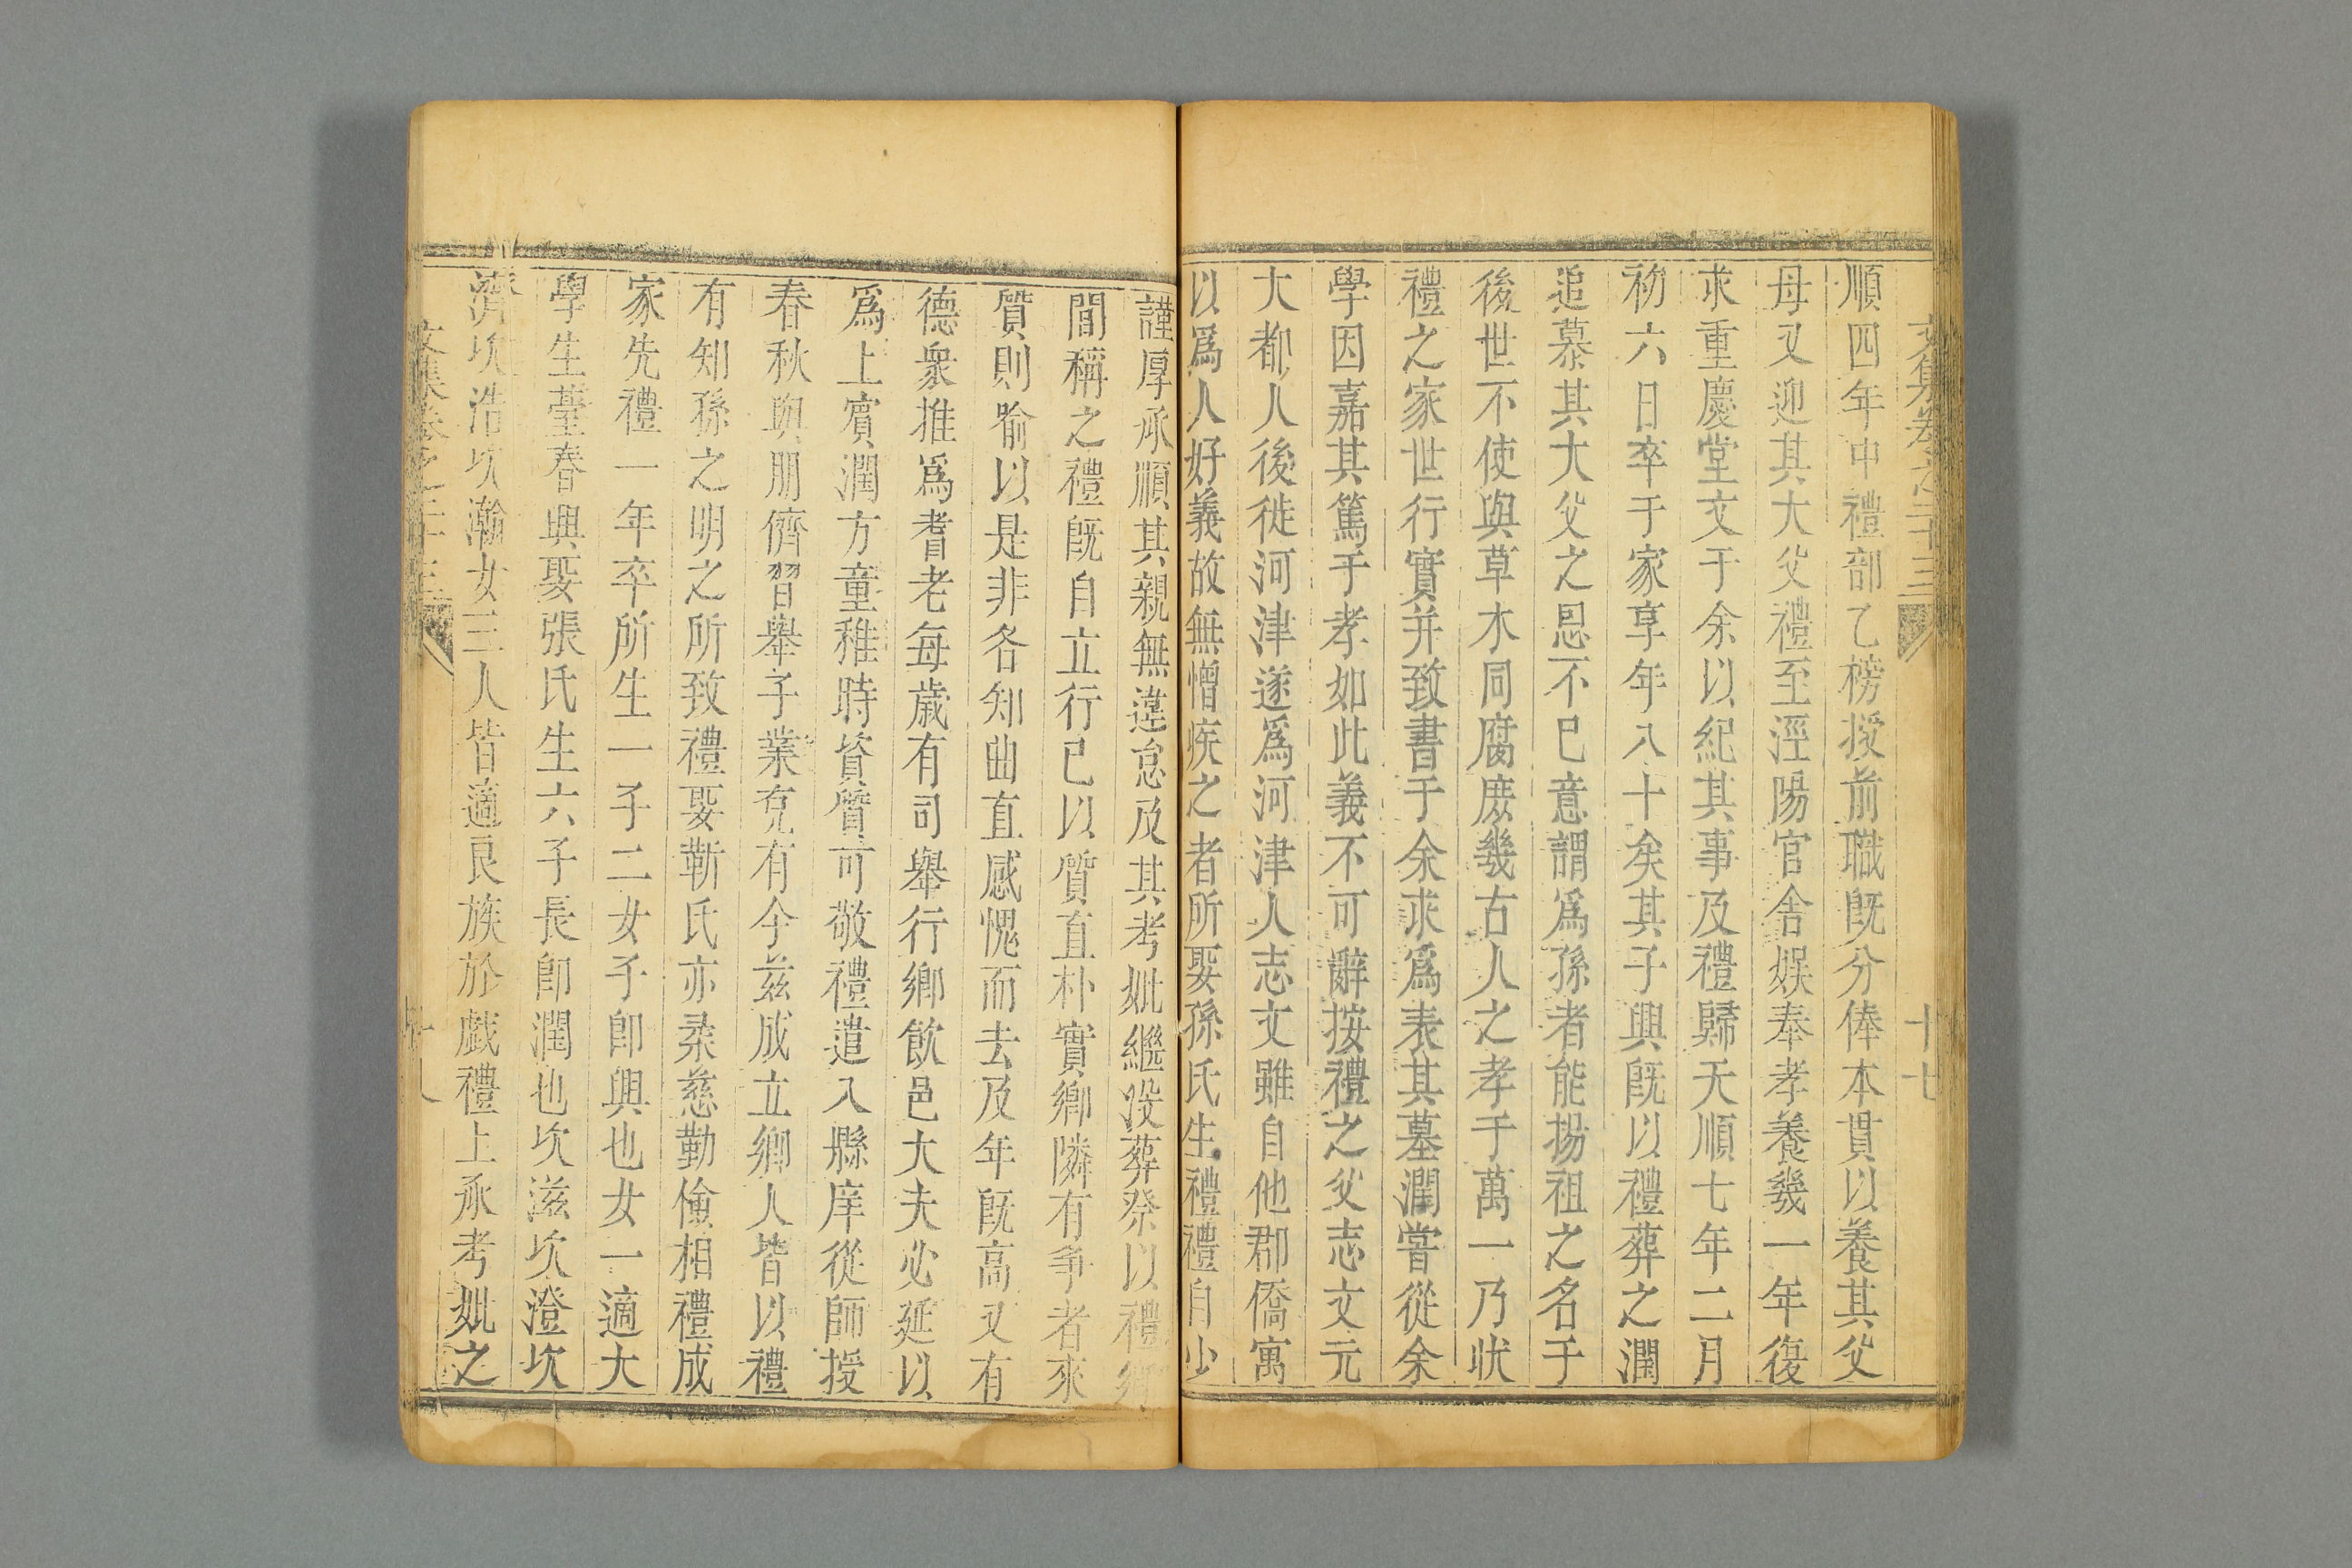 文集卷之二十三
十七
順四年中禮部乙榜授前職既分俸本貫以養其父
母又迎其大父禮至涇陽官舍娱奉孝養幾一年復
求重慶堂文于余以紀其事及禮歸天順七年二月
初六日卒于家享年八十矣其子興既以禮葬之潤
追慕其大父之恩不已意謂爲孫者能揚祖之名于
後世不使與草木同腐庶幾古人之孝于萬一乃狀
禮之家世行實并致書于余求爲表其墓潤嘗從余
學因嘉其篤于孝如此義不可辭按禮之父志文元
大都人後徙河津遂爲河津人志文雖自他郡僑寓
以爲人好義故無憎疾之者所娶孫氏生禮禮自少
謹厚承順其親無違怠及其考妣繼没葬祭以禮鄉
間稱之禮既自立行已以質直朴實鄉隣有爭者來
質則喻以是非各知曲直感愧而去及年既高又有
德衆推爲耆老每歳有司舉行鄉飲邑大夫必延以
爲上賓潤方童稚時資質可敬禮遣入縣庠從師授
春秋與朋儕習舉子業克有今兹成立鄉人皆以禮
有知孫之明之所致禮娶靳氏亦柔慈勤儉相禮成
家先禮一年卒所生一子二女子即興也女一適大
學生薹春興娶張氏生六子長即潤也次滋次澄次
濟次浩次瀚女三人皆適良族於戯禮上承考妣之
文集卷之二十三
十八